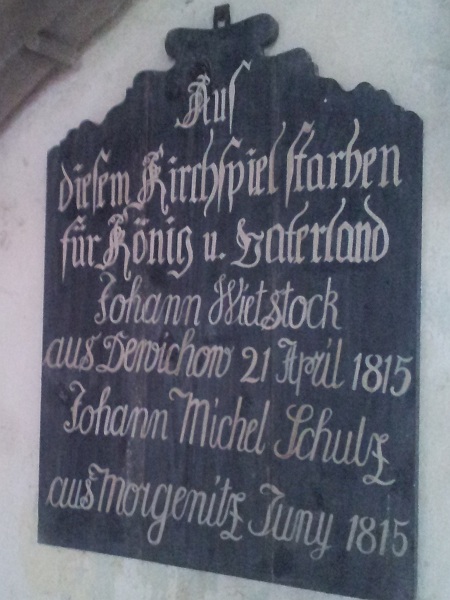 Aus
diesem Kirchspiel starben
für König u. Vaterland
Johann Wietstock
aus Dewichow 21 April 1815
Johann Michel Schulz
aus Morgenitz Juny 1815